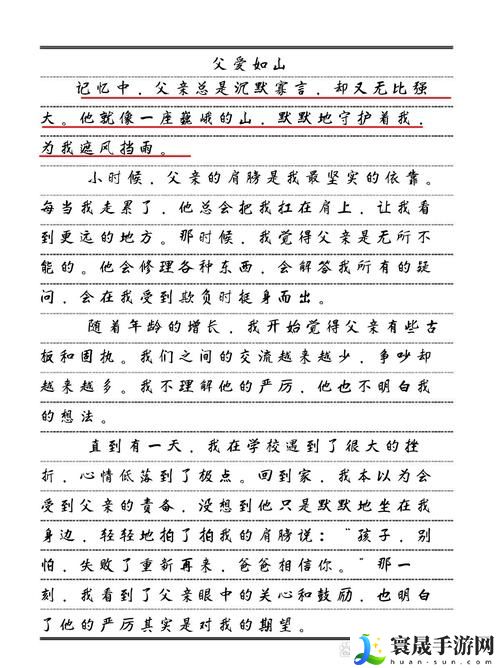 父爱如山
记忆中，父亲总是沉默寡言，却又无比强
大。他就像一座巍峨的山，默默地守护着我，
为我遮风挡雨。
小时候，父亲的肩膀是我最坚实的依靠。
每当我走累了，他总会把我扛在肩上，让我看
到更远的地方。那时候，我觉得父亲是无所不
能的。他会修理各种东西，会解答我所有的疑
问，会在我受到欺负时挺身而出。
随着年龄的增长，我开始觉得父亲有些古
板和固执。我们之间的交流越来越少，争吵却
越来越多。我不理解他的严厉，他也不明白我
的想法。
直到有一天，我在学校遇到了很大的挫
折，心情低落到了极点。回到家，我本以为会
受到父亲的责备，没想到他只是默默地坐在我
身边，轻轻地拍了拍我的肩膀说：“孩子，别
怕，失败了重新再来，爸爸相信你。”那一
刻，我看到了父亲眼中的关心和鼓励，也明白
了他的严厉其实是对我的期望。
寰晟手游网
huan-sun.com